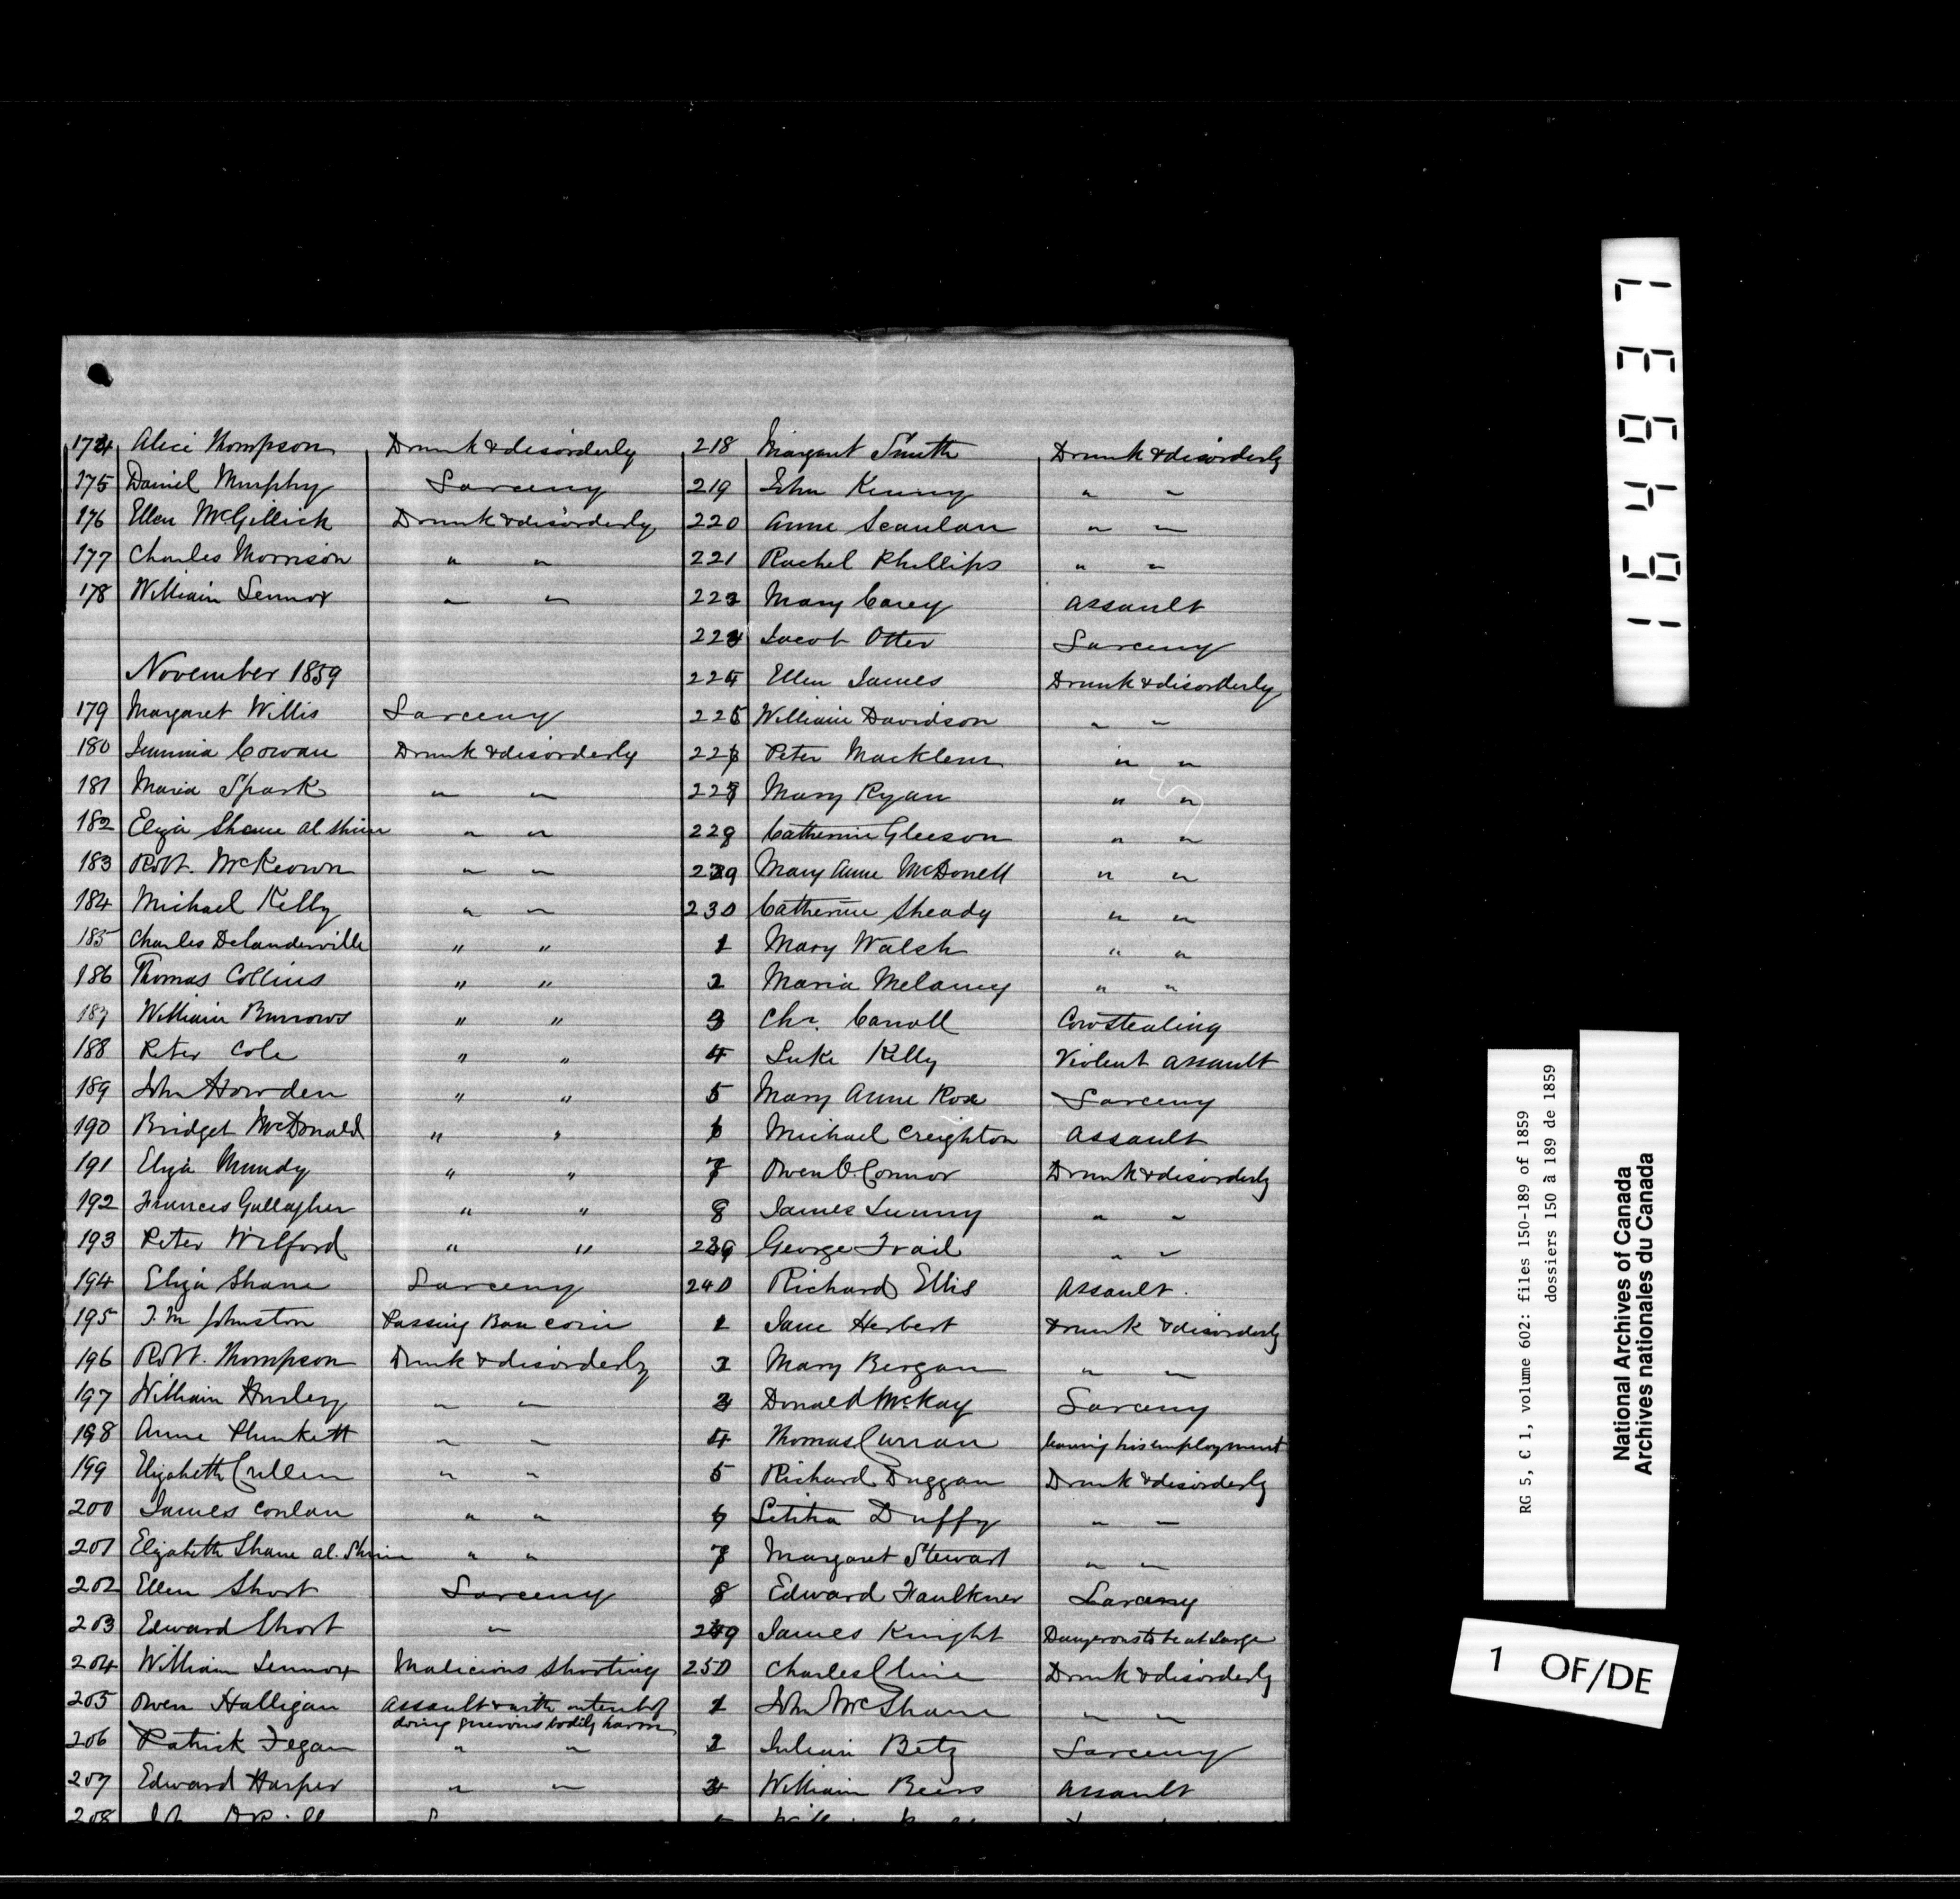 174 Alice Thompson Drunk & disorderly
175 Daniel Murphy Larceny
176 Ellen McGillick Drunk & disorderly
177 Charles Morrison " "
178 William Lennox " "
November 1859
179 Margaret Willis Larceny
180 Jemmia Cowan Drunk & disorderly
181 Maria Spark " "
182 Eliza Shane al Shine " "
183 Robt. McKeown " "
184 Michael Kelly " "
185 Charles Delanderville " "
186 Thomas Collins " "
187 William Burrows " "
188 Peter Cole " "
189 John Howden " "
190 Bridget McDonald " "
191 Eliza Mundy " "
192 Frances Gallagher " "
193 Peter Wilford " "
194 Eliza Shane Larceny
195 J. M Johnston Passing Base coin
196 Robt. Thompson Drunk & disorderly
197 William Hurley " "
198 Anne Plunkett " "
199 Elizabeth Cullen " "
200 James Conlan " "
201 Elizabeth Shane al. Shine " "
202 Ellen Short Larceny
203 Edward Short "
204 William Lennox Malicious Shooting
205 Owen Halligan Assault with intent of
doing grievous bodily harm
206 Patrick Fegan " "
207 Edward Harper " "
208
218 Margaret Smith Drunk & disorderly
219 John Kenny " "
220 Anne Scanlan " "
221 Rachel Phillips " "
222 Mary Carey Assault
223 Jacob Otter Larceny
224 Ellen James Drunk & disorderly
225 William Davidson " "
226 Peter Macklem " "
227 Mary Ryan " "
228 Catherine Gleeson " "
229 Mary Anne McDonell " "
230 Catherine Sheady " "
1 Mary Walsh " "
2 Maria Melaney " "
3 Chr. Carroll Cowstealing
4 Luke Kelly Violent assault
5 Mary Anne Rose Larceny
6 Michael Creighton Assault
7 Owen O'Connor Drunk & disorderly
8 James Lunny " "
239 George Trail " "
240 Richard Ellis Assault.
1 Jane Herbert Drunk & disorderly
2 Mary Bergan " "
3 Donald McKay Larceny
4 Thomas Curran leaving his employment
5 Richard Duggan Drunk & disorderly
6 Letitia Duffy " "
7 Margaret Stewart " "
8 Edward Faulkner Larceny
249 James Knight Dangerous to be at Large
250 Charles Cline Drunk & disorderly
1 John McShane " "
2 Julian Betz Larceny
3 William Beers Assault
194637
RG 5, C 1, volume 602: files 150-189 of 1859
dossiers 150 à 189 de 1859
National Archives of Canada
Archives nationales du Canada
1 OF/DE